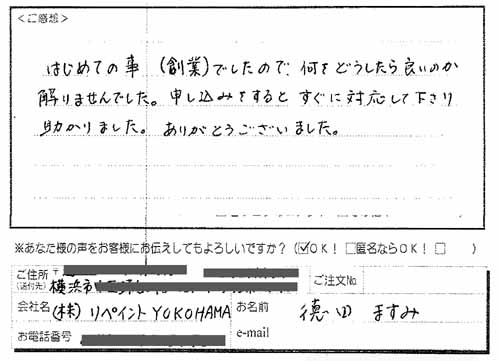 ＜ご感想＞
はじめての事 (創業)でしたので、何をどうしたら良いのか
解りませんでした。申し込みをすると すぐに対応して下さり
助かりました。ありがとうございました。
※あなた様の声をお客様にお伝えしてもよろしいですか？ (☑OK！ □匿名ならOK！ □ )
ご住所 〒
(送付先) 横浜市
ご注文No
会社名 (株) リペイント YOKOHAMA
お名前 徳田 ますみ
お電話番号
e-mail